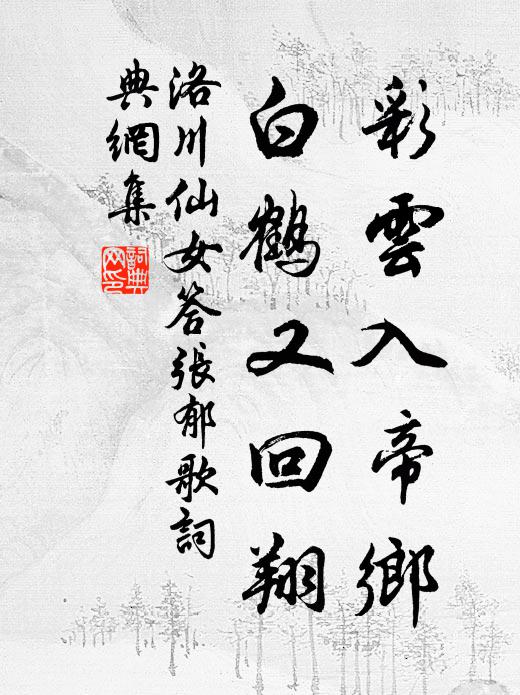 彩雲入帝鄉
白鶴又回翔
洛川仙女答張郁歌詞
典網集
詞典網印